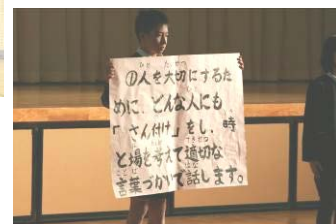 ①人を大切にするた
めに、どんな人にも
「さん付け」をし、時
と場を考えて適切な
言葉づかいで話します。